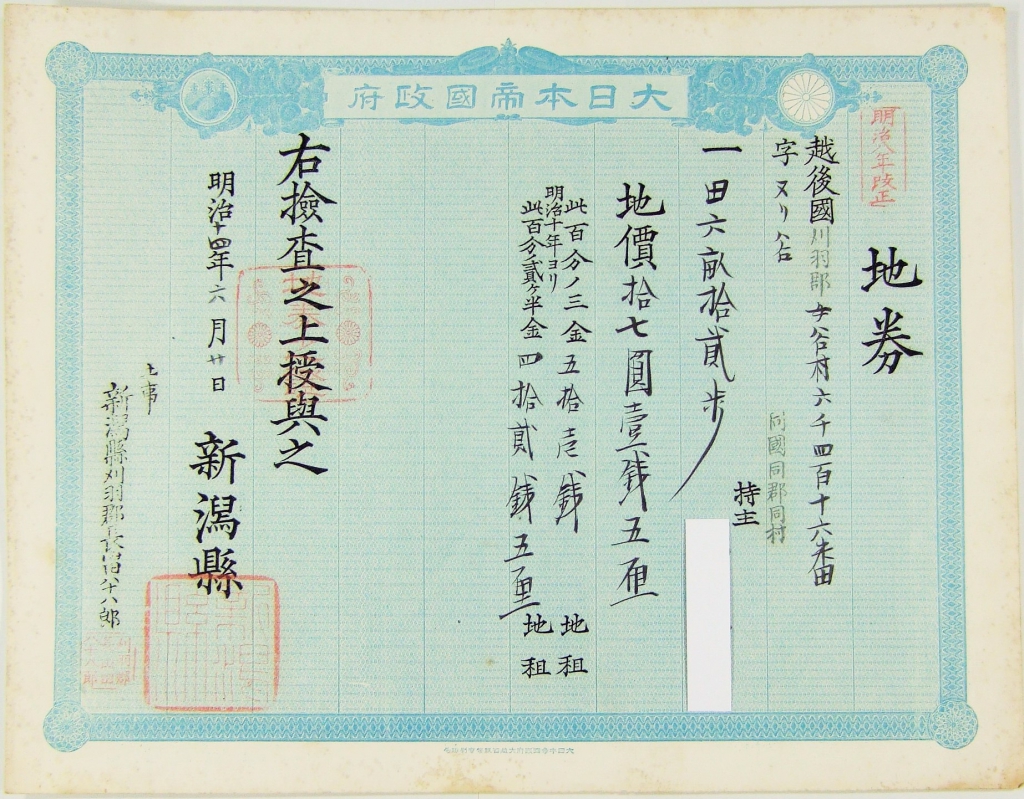 大日本帝國政府
明治八年改正
地券
越後國刈羽郡女谷村六千四百十六番
字又リ谷
同國同郡同村
持主
一田六畝拾貳歩
地價拾七圓壹銭五厘
此百分ノ三金五拾壱銭 地租
明治十年ヨリ
此百分ノ貳ヶ半金四拾貳銭五厘 地租
右撿査之上授與之
明治十四年六月廿日
新潟縣
主事
新潟縣刈羽郡長